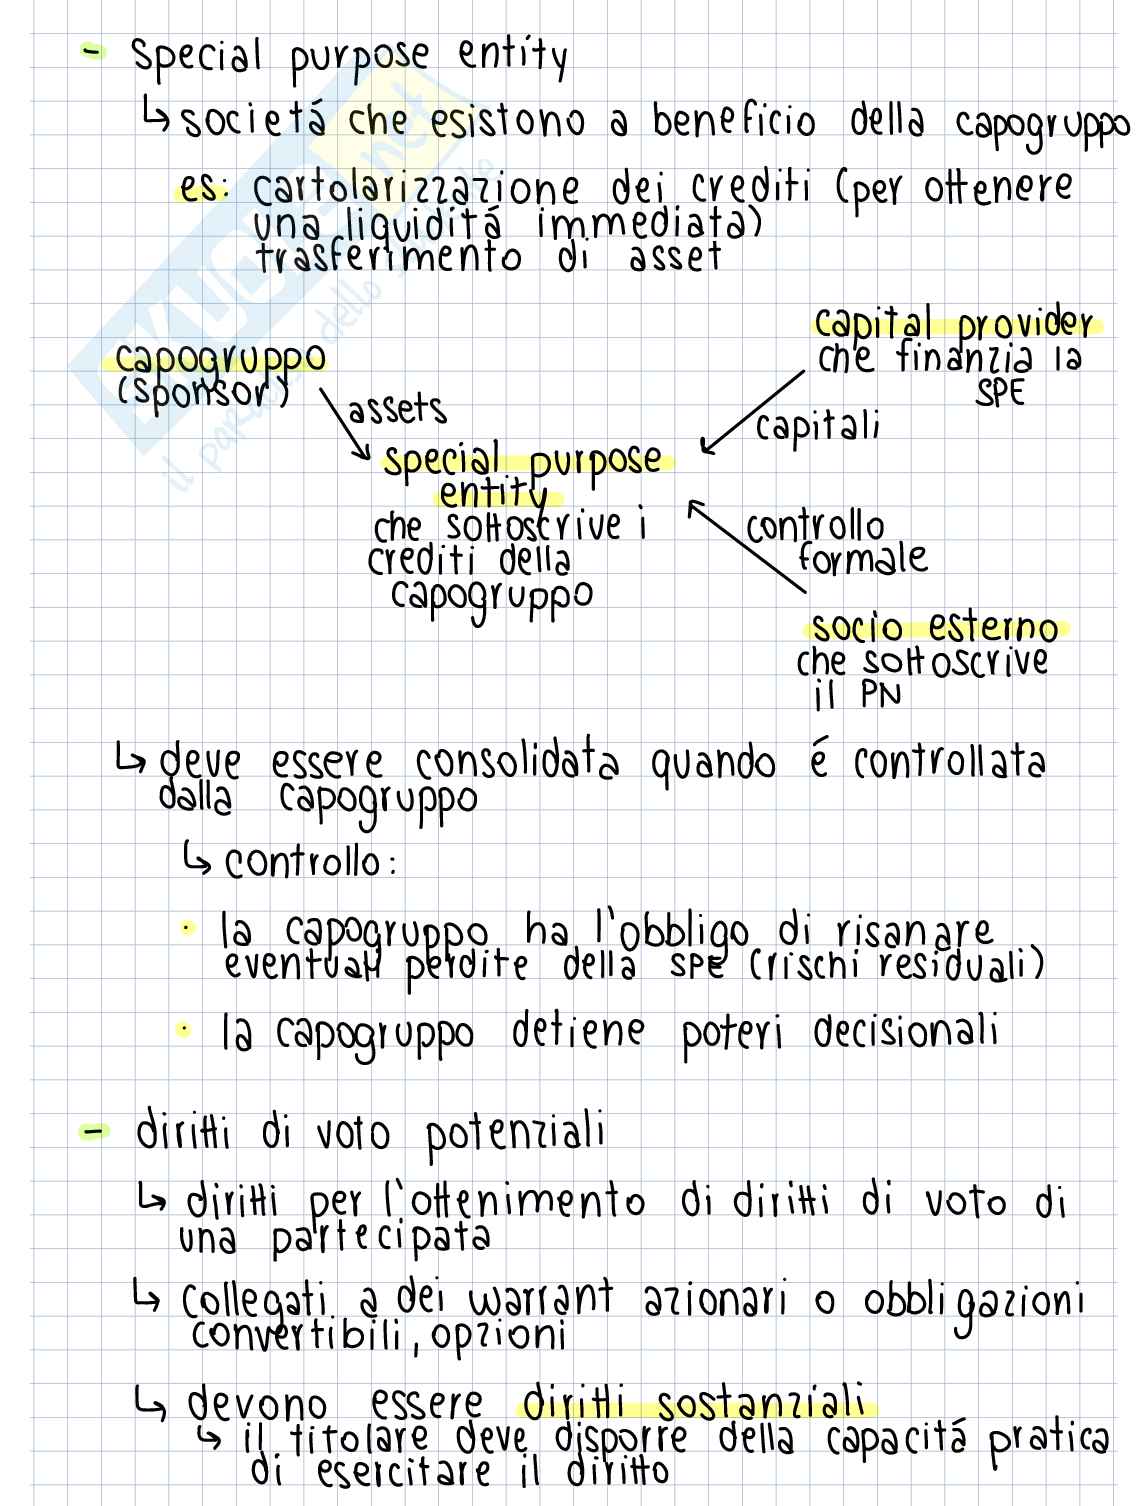 - special purpose entity
↳ societá che esistono a beneficio della capogruppo
es: cartolarizzazione dei crediti (per ottenere
una liquiditá immediata)
trasferimento di asset
capogruppo
(sponsor)
assets
capital provider
che finanzia la
SPE
capitali
special purpose
entity
che sottoscrive i
crediti della
capogruppo
controllo
formale
socio esterno
che sottoscrive
il PN
↳ deve essere consolidata quando é controllata
dalla capogruppo
↳ controllo:
· la capogruppo ha l'obbligo di risanare
eventuali perdite della SPE (rischi residuali)
· la capogruppo detiene poteri decisionali
- diritti di voto potenziali
↳ diritti per l'ottenimento di diritti di voto di
una partecipata
↳ collegati a dei warrant azionari o obbligazioni
convertibili, opzioni
↳ devono essere diritti sostanziali
↳ il titolare deve disporre della capacitá pratica
di esercitare il diritto